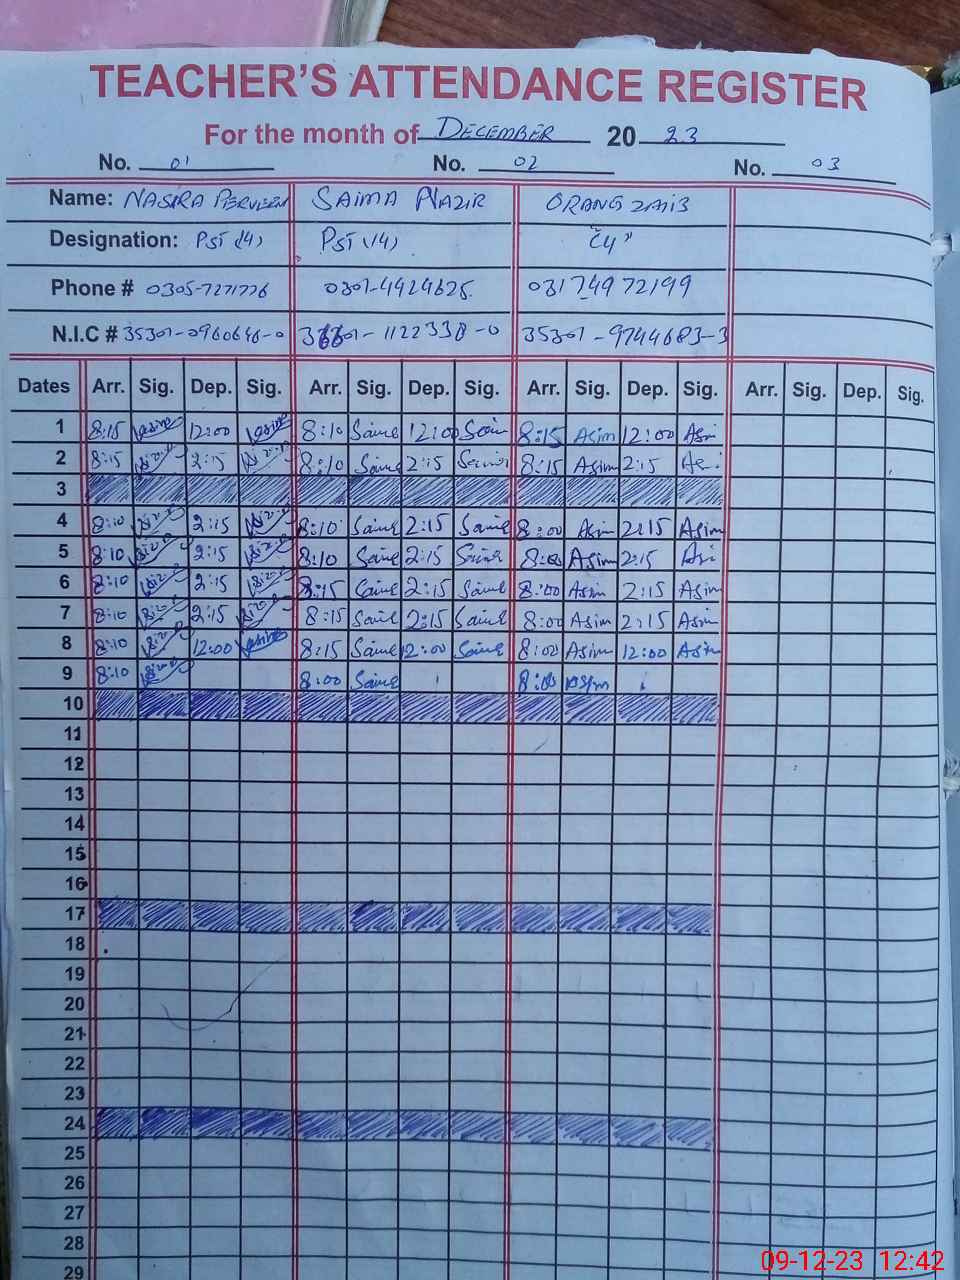 TEACHER'S ATTENDANCE REGISTER
For the month of DECEMBER 20 23
No. 01 No. 02 No. 03
Name: NASIRA PERVEEN SAIMA NAZIR ORANGZAIB
Designation: PST (14) PST (14) C4
Phone # 0305-7271776 0301-4924625 031749 72199
N.I.C # 35301-0960646-0 01-1122338-0 35301-9744683-3
Dates Arr. Sig. Dep. Sig. Arr. Sig. Dep. Sig. Arr. Sig. Dep. Sig. Arr. Sig. Dep. Sig.
1 8:15 12:00 8:10 Saima 12:00 8:15 Asim 12:00 Asim
2 8:15 2:15 8:10 Saima 2:15 Saima 8:15 Asim 2:15
3
4 8:10 2:15 8:10 Saima 2:15 Saima 8:00 Asim 2:15 Asim
5 8:10 2:15 8:10 Saima 2:15 Saima 8:00 Asim 2:15
6 8:10 2:15 8:15 Saima 2:15 Saima 8:00 Asim 2:15 Asim
7 8:10 2:15 8:15 Saima 2:15 Saima 8:00 Asim 2:15 Asim
8 8:10 12:00 8:15 Saima 12:00 Saima 8:00 Asim 12:00 Asim
9 8:10 8:00 Saima 8:00 Asim
10
11
12
13
14
15
16
17
18
19
20
21
22
23
24
25
26
27
28
29
09-12-23 12:42